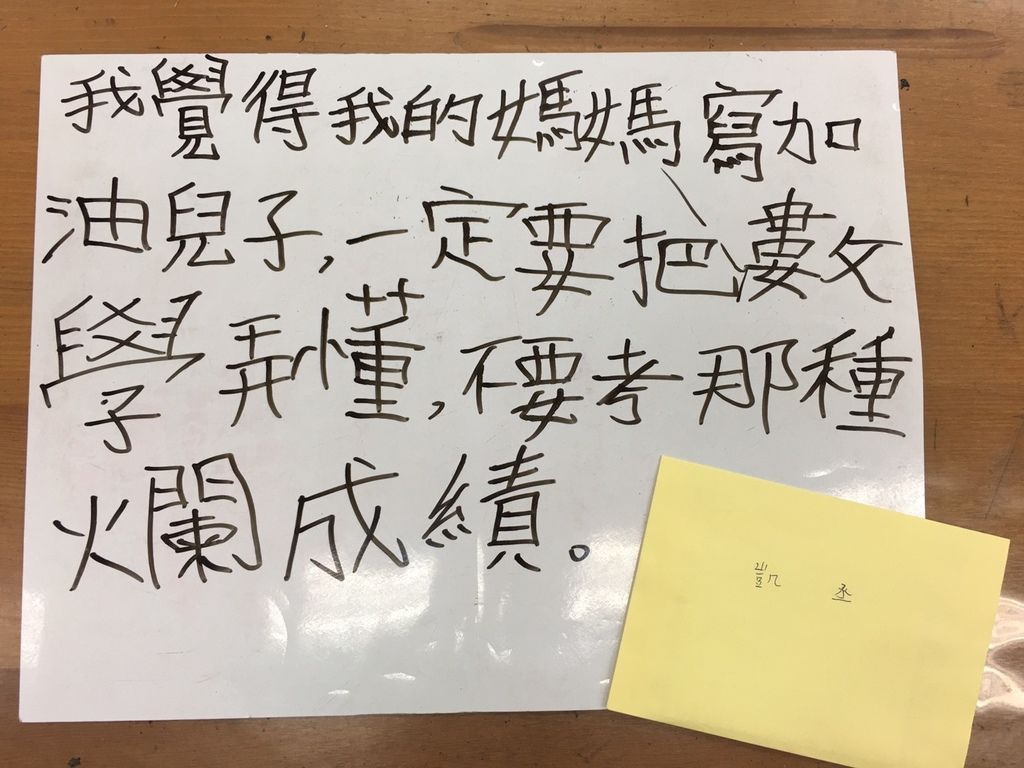 我覺得我的媽媽寫加
油兒子,一定要把數
學弄懂,不要考那種
爛成績。
凱 丞